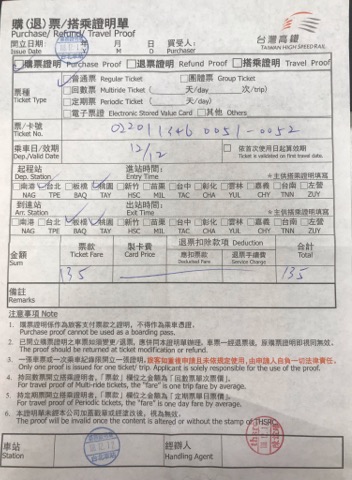 購(退)票/搭乘證明單
Purchase/ Refund/ Travel Proof
台灣高鐵
TAIWAN HIGH SPEED RAIL
開立日期: 年 月 日 買受人:
Issue Date Y M D Purchaser
購票證明 Purchase Proof 退票證明 Refund Proof 搭乘證明 Travel Proof
票種
Ticket Type
普通票 Regular Ticket 團體票 Group Ticket
回數票 Multiride Ticket ( 天/day 次/trip)
定期票 Periodic Ticket ( 天/day)
電子票證 Electronic Stored Value Card 其他 Others
票/卡號
Ticket No.
乘車日/效期
Dep./Valid Date
12/12
依首次使用日起算效期
Ticket is validated on first travel date.
起程站 進站時間:
Dep. Station Entry Time *主張搭乘證明需填寫
南港 台北 板橋 桃園 新竹 苗栗 台中 彰化 雲林 嘉義 台南 左營
NAG TPE BAQ TAY HSC MIL TAC CHA YUL CHY TNN ZUY
到達站 出站時間:
Arr. Station Exit Time *主張搭乘證明需填寫
南港 台北 板橋 桃園 新竹 苗栗 台中 彰化 雲林 嘉義 台南 左營
NAG TPE BAQ TAY HSC MIL TAC CHA YUL CHY TNN ZUY
金額
Sum
票款
Ticket Fare
製卡費
Card Price
退票扣除款項 Deduction
應扣票款
Deducted Fare
退票手續費
Service Charge
合計
Total
135 135
備註
Remarks
注意事項 Note
1. 購票證明係作為旅客支付票款之證明,不得作為乘車憑證。
Purchase proof cannot be used as a boarding pass.
2. 已開立購票證明之車票如需變更/退票,應併同本證明單辦理。車票一經退票後,原購票證明即視同無效。
The proof should be returned at ticket modification or refund.
3. 一張車票或一次乘車紀錄限開立一張證明,旅客如重複申請且未依規定使用,由申請人自負一切法律責任。
Only one proof is issued for one ticket/ trip. Applicant is solely responsible for the use of the proof.
4. 持回數票開立搭乘證明者,「票款」欄位之金額為「回數票單次票價」。
For travel proof of Multi-ride tickets, the "fare" is one trip fare by average.
5. 持定期票開立搭乘證明者,「票款」欄位之金額為「定期票單日票價」。
For travel proof of Periodic tickets, the "fare" is one day fare by average.
6. 本證明單未經本公司加蓋戳章或經塗改後,視為無效。
The proof will be invalid once the content is altered or without the stamp of THSRC.
車站
Station
經辦人
Handling Agent